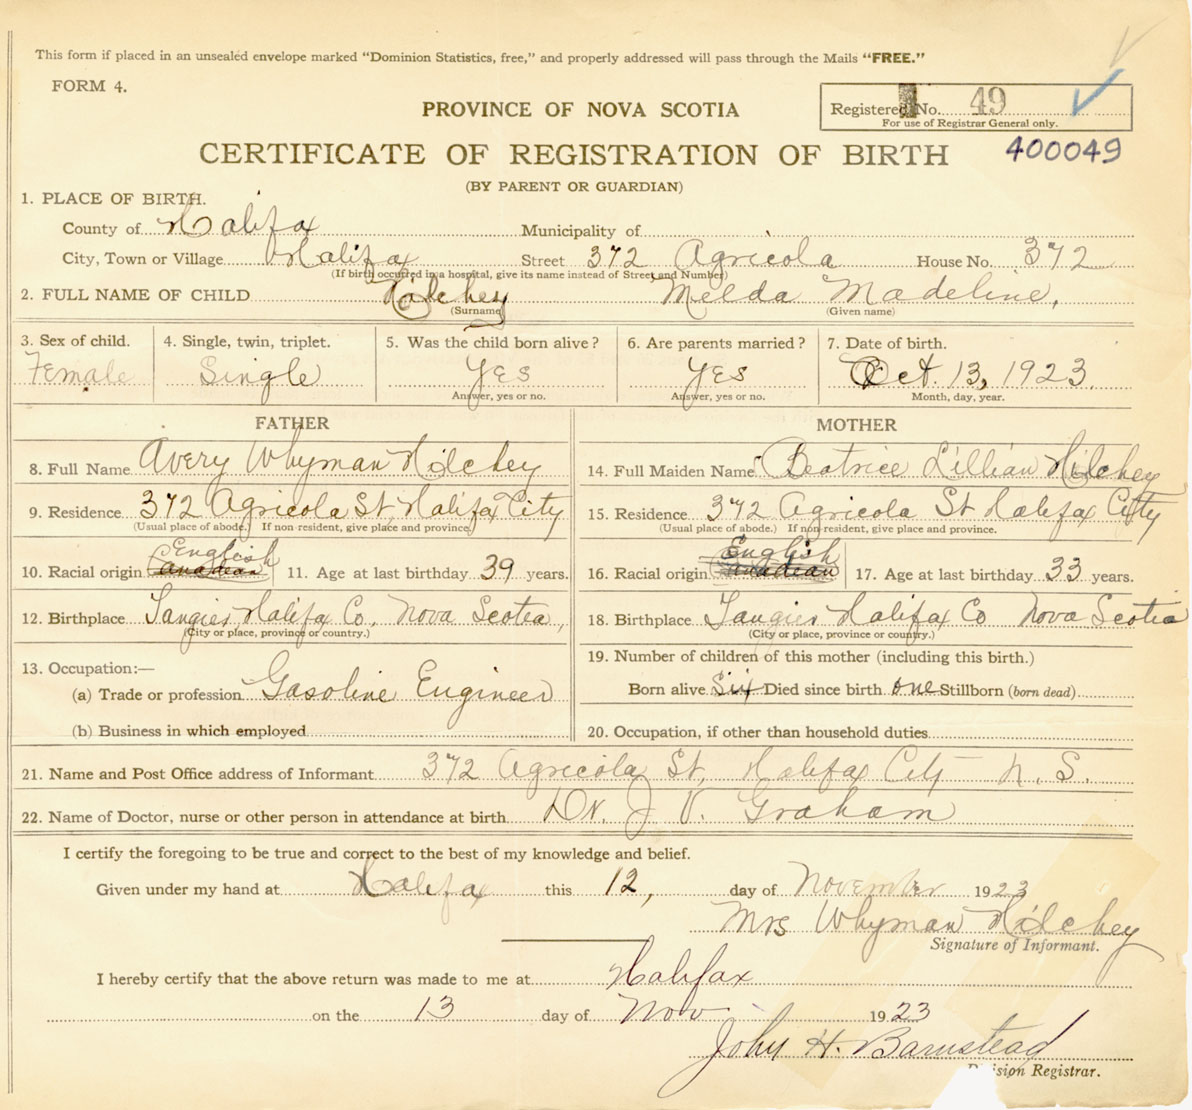 This form if placed in an unsealed envelope marked "Dominion Statistics, free," and properly addressed will pass through the Mails "FREE."
FORM 4.
Registered No. 49
For use of Registrar General only.
PROVINCE OF NOVA SCOTIA
CERTIFICATE OF REGISTRATION OF BIRTH 400049
(BY PARENT OR GUARDIAN)
1. PLACE OF BIRTH.
County of Halifax Municipality of
City, Town or Village Halifax Street 372 Agricola House No. 372
(If birth occurred in a hospital, give its name instead of Street and Number)
2. FULL NAME OF CHILD Hilchey Melda Madeline,
(Surname) (Given name)
3. Sex of child. 4. Single, twin, triplet. 5. Was the child born alive? 6. Are parents married? 7. Date of birth.
Female Single Yes Yes Oct. 13, 1923.
Answer, yes or no. Answer, yes or no. Month, day, year.
FATHER MOTHER
8. Full Name Avery Whyman Hilchey 14. Full Maiden Name Beatrice Lillian Hilchey
9. Residence 372 Agricola St Halifax City 15. Residence 372 Agricola St Halifax City
(Usual place of abode.) If non-resident, give place and province. (Usual place of abode.) If non-resident, give place and province.
English English
10. Racial origin Canadian 11. Age at last birthday 39 years. 16. Racial origin Canadian 17. Age at last birthday 33 years.
12. Birthplace Tangier Halifax Co, Nova Scotia, 18. Birthplace Tangier Halifax Co Nova Scotia
(City or place, province or country.) (City or place, province or country.)
13. Occupation:— 19. Number of children of this mother (including this birth.)
(a) Trade or profession Gasoline Engineer Born alive Six Died since birth one Stillborn (born dead)
(b) Business in which employed 20. Occupation, if other than household duties
21. Name and Post Office address of Informant 372 Agricola St, Halifax City N. S.
22. Name of Doctor, nurse or other person in attendance at birth Dr. J V. Graham
I certify the foregoing to be true and correct to the best of my knowledge and belief.
Given under my hand at Halifax this 12, day of November 1923
Mrs Whyman Hilchey
Signature of Informant.
I hereby certify that the above return was made to me at Halifax
on the 13 day of Nov 1923
John H. Barnstead
Division Registrar.